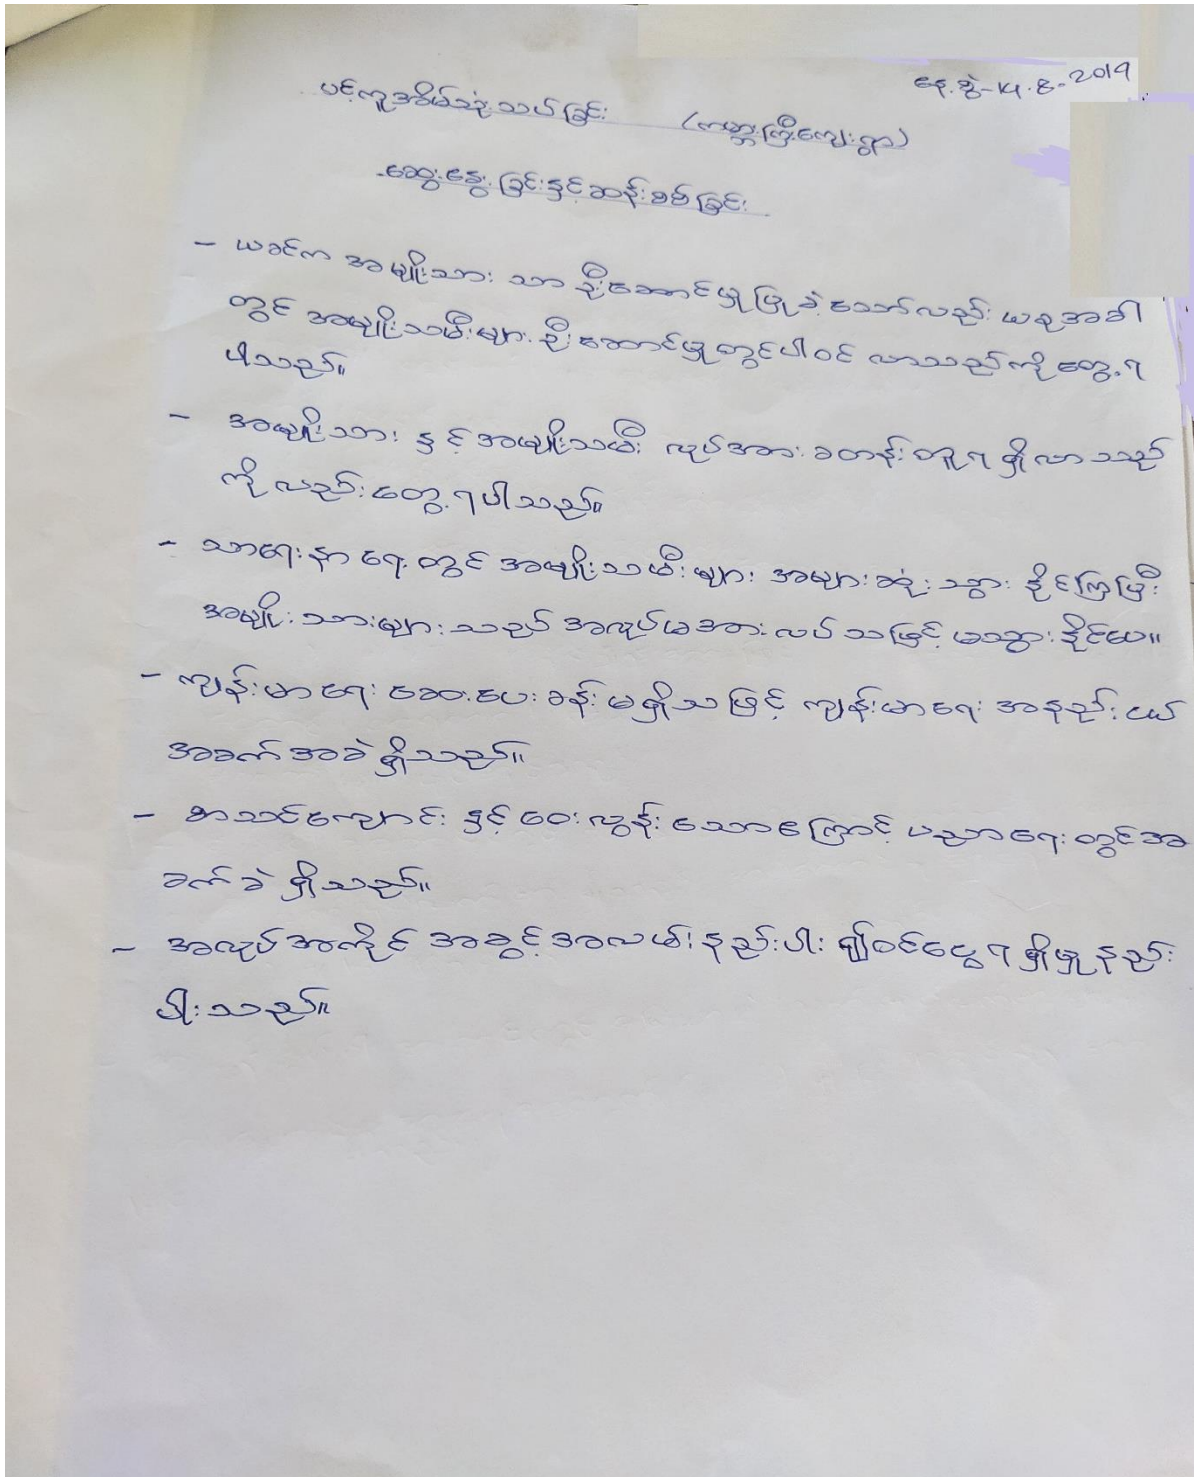 နေ့စွဲ-14.8.2019
ပင့်ကူအိမ်သုံးသပ်ခြင်း (ကမ္ဘာကြီးကျေးရွာ)
ဆွေးနွေးခြင်းနှင့်ဆန်းစစ်ခြင်း
- ယခင်က အမျိုးသား သာ ဦးဆောင်မှုပြုခဲ့သော်လည်း ယခုအခါ
တွင် အမျိုးသမီးများ ဦးဆောင်မှုတွင်ပါဝင် လာသည်ကိုတွေ့ရ
ပါသည်။
- အမျိုးသား နှင့်အမျိုးသမီး လုပ်အားခတန်းတူရရှိလာသည်
ကိုလည်းတွေ့ရပါသည်။
- သာရေးနာရေးတွင် အမျိုးသမီးများ အများဆုံးသွားနိုင်ကြပြီး
အမျိုးသားများသည် အလုပ်မအားလပ်သဖြင့် မသွားနိုင်ပေ။
- ကျန်းမာရေးဆေးပေးခန်းမရှိသဖြင့် ကျန်းမာရေး အနည်းငယ်
အခက်အခဲရှိသည်။
- စာသင်ကျောင်း နှင့်ဝေးလွန်းသောကြောင့် ပညာရေးတွင်အ
ခက်ခဲရှိသည်။
- အလုပ်အကိုင် အခွင့်အလမ်းနည်းပါး၍ဝင်ငွေရရှိမှုနည်း
ပါးသည်။